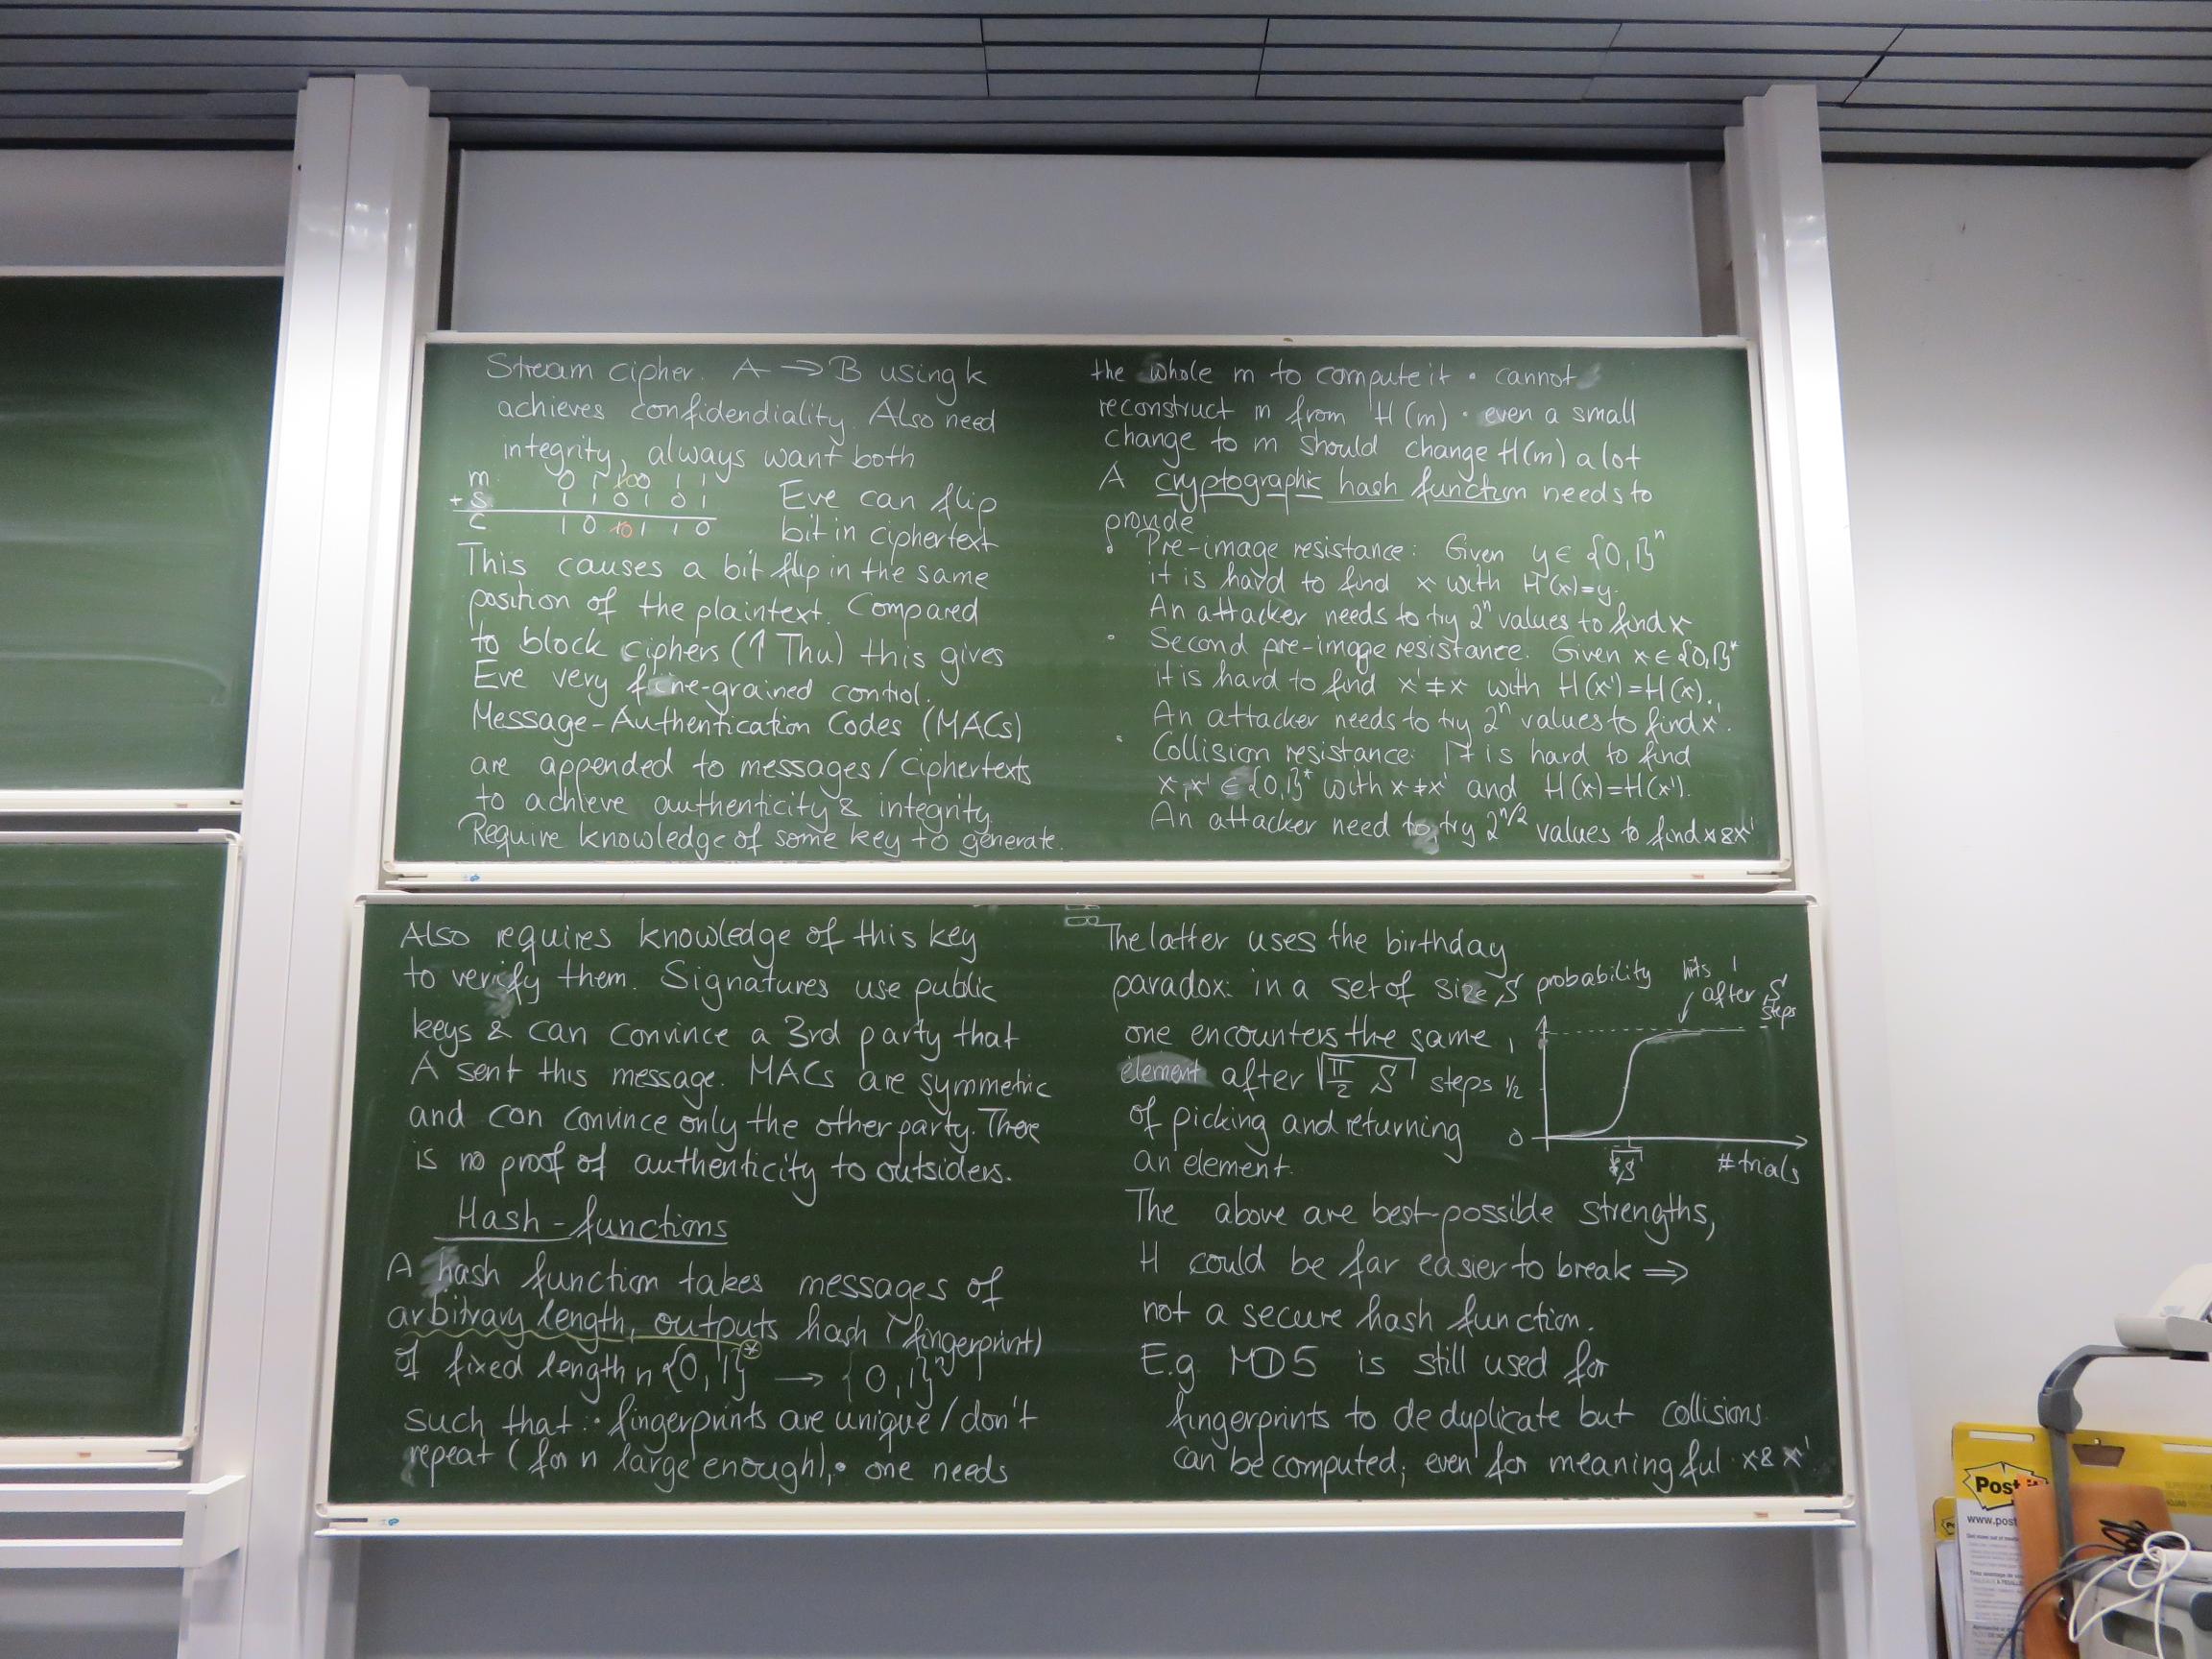 Stream cipher. A → B using k
achieves confidendiality. Also need
integrity, always want both
m 0 1 1 0 0 1 1
+ s 1 1 0 1 0 1
c 1 0 1 0 1 1 0
Eve can flip
bit in ciphertext
This causes a bit flip in the same
position of the plaintext. Compared
to block ciphers (↑ Thu) this gives
Eve very fine-grained control.
Message-Authentication Codes (MACs)
are appended to messages/ciphertexts
to achieve authenticity & integrity
Require knowledge of some key to generate.
Also requires knowledge of this key
to verify them. Signatures use public
keys & can convince a 3rd party that
A sent this message. MACs are symmetric
and can convince only the other party. There
is no proof of authenticity to outsiders.
Hash-functions
A hash function takes messages of
arbitrary length, outputs hash (fingerprint)
of fixed length n {0,1}* → {0,1}^n
such that: • fingerprints are unique/don't
repeat (for n large enough), • one needs
the whole m to compute it • cannot
reconstruct m from H(m) • even a small
change to m should change H(m) a lot
A cryptographic hash function needs to
provide
• Pre-image resistance: Given y ∈ {0,1}^n
it is hard to find x with H(x)=y.
An attacker needs to try 2^n values to find x
• Second pre-image resistance. Given x ∈ {0,1}*
it is hard to find x' ≠ x with H(x')=H(x).
An attacker needs to try 2^n values to find x'.
• Collision resistance: It is hard to find
x, x' ∈ {0,1}* with x ≠ x' and H(x)=H(x').
An attacker need to try 2^n/2 values to find x & x'
The latter uses the birthday
paradox: in a set of size S
one encounters the same
element after √(π/2 S) steps
of picking and returning
an element.
probability
hits 1
after S
steps
1
1/2
0
# trials
The above are best-possible strengths,
H could be far easier to break ⇒
not a secure hash function.
E.g. MD5 is still used for
fingerprints to deduplicate but collisions
can be computed; even for meaningful x & x'
Post-it
www.post